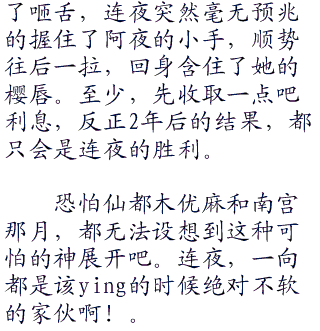 了咂舌，连夜突然毫无预兆
的握住了阿夜的小手，顺势
往后一拉，回身含住了她的
樱唇。至少，先收取一点吧
利息，反正2年后的结果，都
只会是连夜的胜利。
恐怕仙都木优麻和南宫
那月，都无法设想到这种可
怕的神展开吧。连夜，一向
都是该ying的时候绝对不软
的家伙啊！。